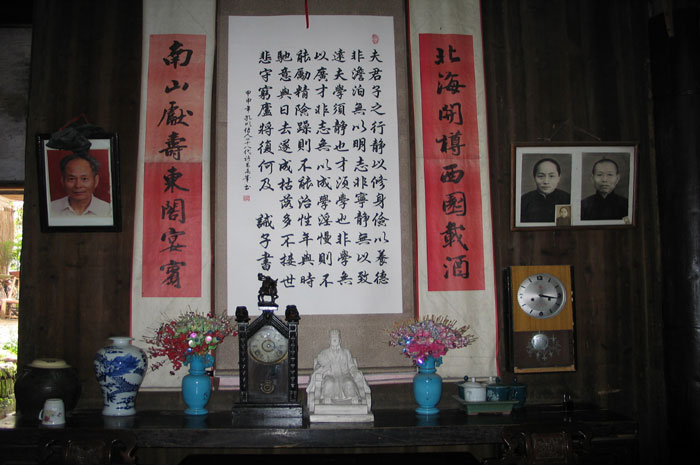 北海開樽西園載酒
夫君子之行靜以修身儉以養德
非澹泊無以明志非寧靜無以致
遠夫學須靜也才須學也非學無
以廣才非志無以成學淫慢則不
能勵精險躁則不能治性年與時
馳意與日去遂成枯落多不接世
悲守窮廬將復何及 誡子書
甲申年
南山獻壽東閣宴賓